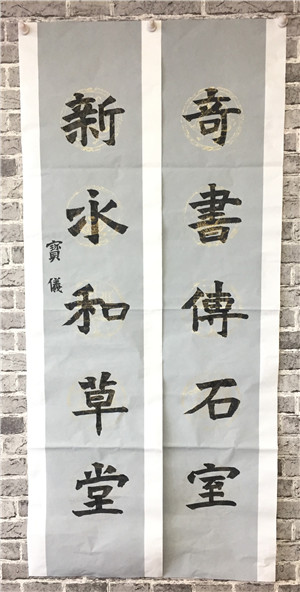 奇書傳石室
新水和草堂
寶儀